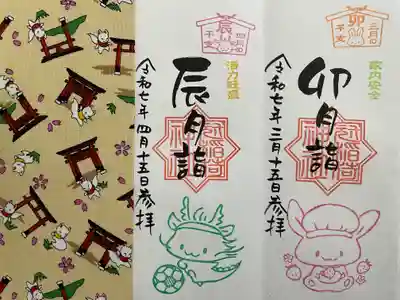 卯
三月
干支
家内安全
卯月詣
令和七年三月十五日参拝
辰
四月
干支
活力旺盛
辰月詣
令和七年四月十五日参拝